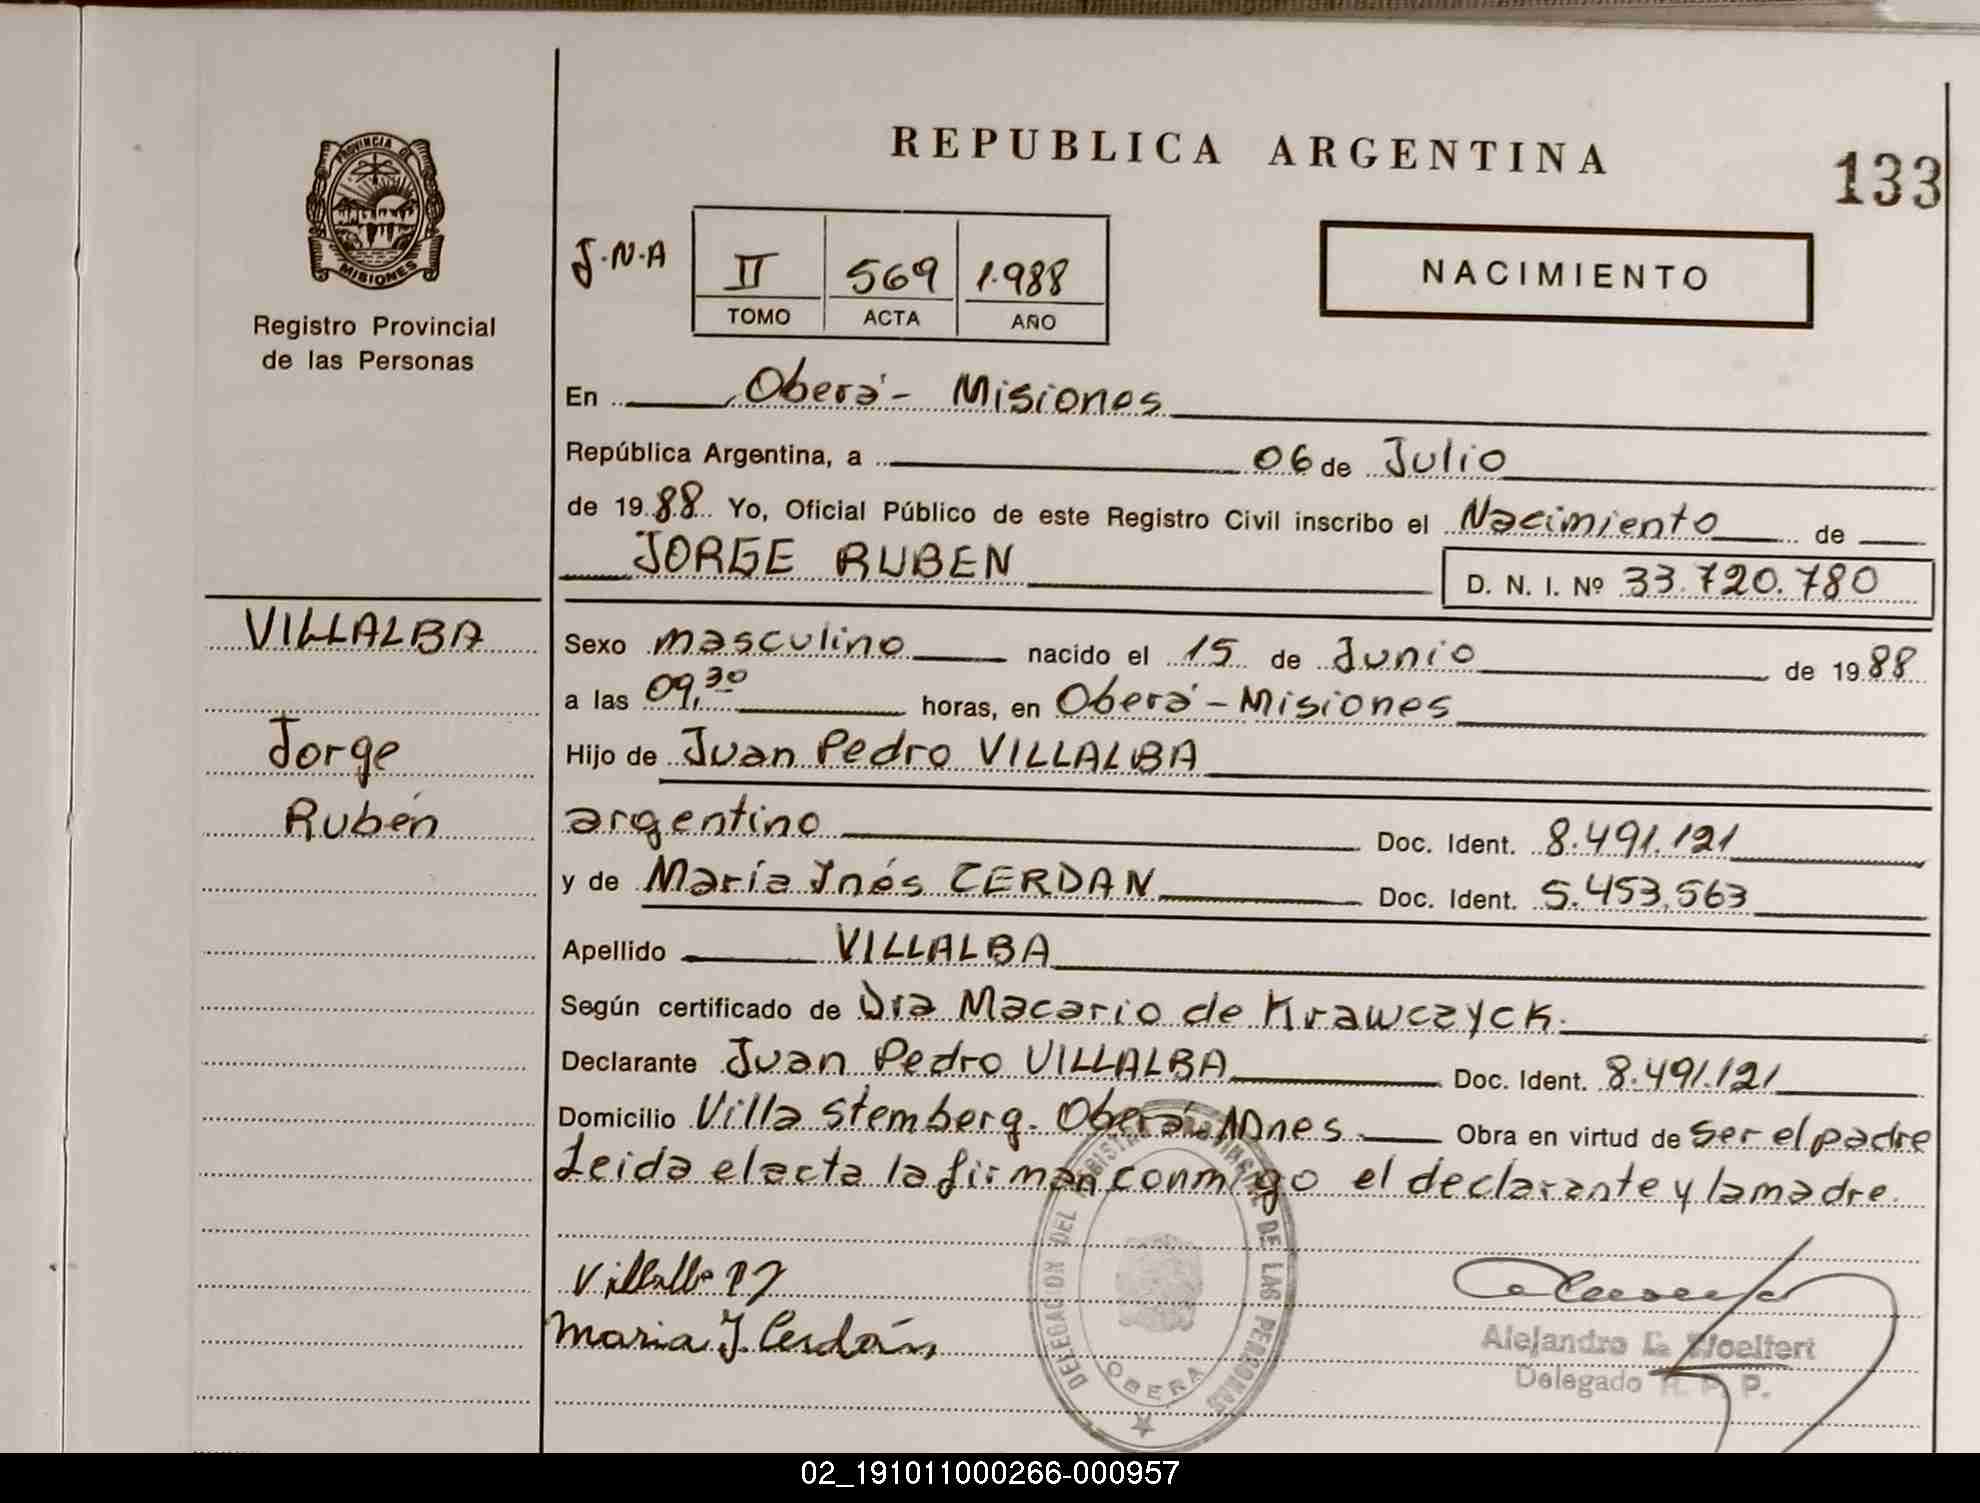 REPUBLICA ARGENTINA
133
PROVINCIA DE
MISIONES
Registro Provincial
de las Personas
J.N.A
II 569 1.988
TOMO ACTA AÑO
NACIMIENTO
En Oberá - Misiones
República Argentina, a 06 de Julio
de 1988 Yo, Oficial Público de este Registro Civil inscribo el Nacimiento de
JORGE RUBEN
D. N. I. Nº 33.720.780
VILLALBA
Jorge
Rubén
Sexo masculino nacido el 15 de Junio de 1988
a las 09,30 horas, en Oberá - Misiones
Hijo de Juan Pedro VILLALBA
argentino Doc. Ident. 8.491.121
y de María Inés CERDAN Doc. Ident. 5.453.563
Apellido VILLALBA
Según certificado de Dra Macario de Krawczyck.
Declarante Juan Pedro VILLALBA Doc. Ident. 8.491.121
Domicilio Villa Stemberg. Oberá. Mnes. Obra en virtud de ser el padre
Leida el acta la firman conmigo el declarante y la madre.
Villalba P J
Maria I. Cerdán
DELEGACION DEL REGISTRO PROVINCIAL DE LAS PERSONAS
OBERA
Alejandro
Delegado R. P. P.
02_191011000266-000957